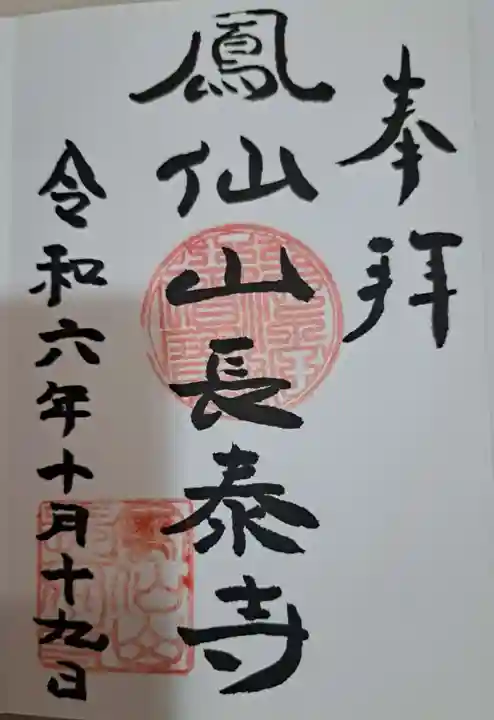 奉拝
鳳仙山長泰寺
令和六年十月十九日